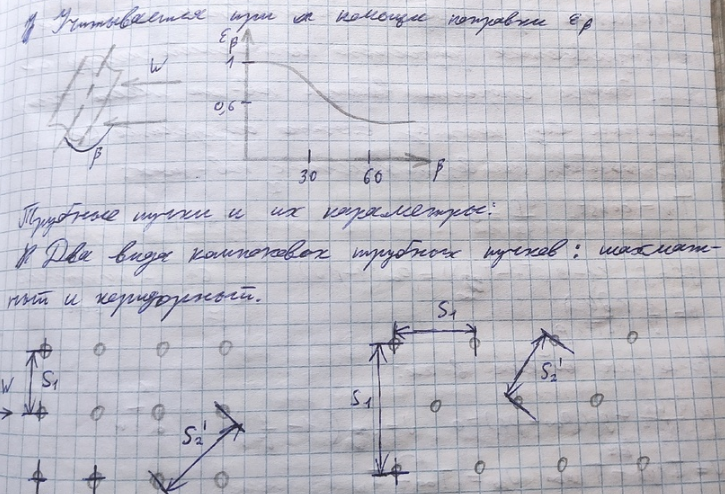 Учитывается при α помощи поправки εβ
εβ
1
W
0,6
β
30
60
β
Трубные пучки и их параметры:
Два вида компоновок трубных пучков: шахмат-
ный и коридорный.
S1
S1
W
S2'
S1
S2'